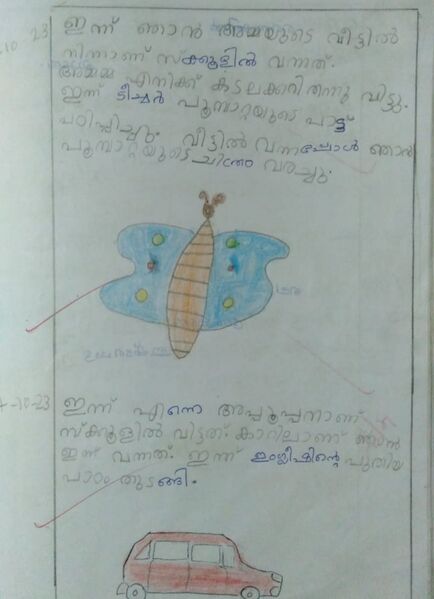 10 23 ഇന്ന് ഞാൻ അമ്മയുടെ വീട്ടിൽ
നിന്നാണ് സ്ക്കൂളിൽ വന്നത്.
അമ്മമ്മ എനിക്ക് കടലക്കറി തന്നു വിട്ടു.
ഇന്ന് ടീച്ചർ പൂമ്പാറ്റയുടെ പാട്ട്
പഠിപ്പിച്ചു. വീട്ടിൽ വന്നപ്പോൾ ഞാൻ
പൂമ്പാറ്റയുടെ ചിത്രം വരച്ചു.
-10-23 ഇന്ന് എന്നെ അപ്പൂപ്പനാണ്
സ്ക്കൂളിൽ വിട്ടത്. കാറിലാണ് ഞാൻ
ഇന്ന് വന്നത്. ഇന്ന് ഇംഗ്ലീഷിന്റെ പുതിയ
പാഠം തുടങ്ങി.